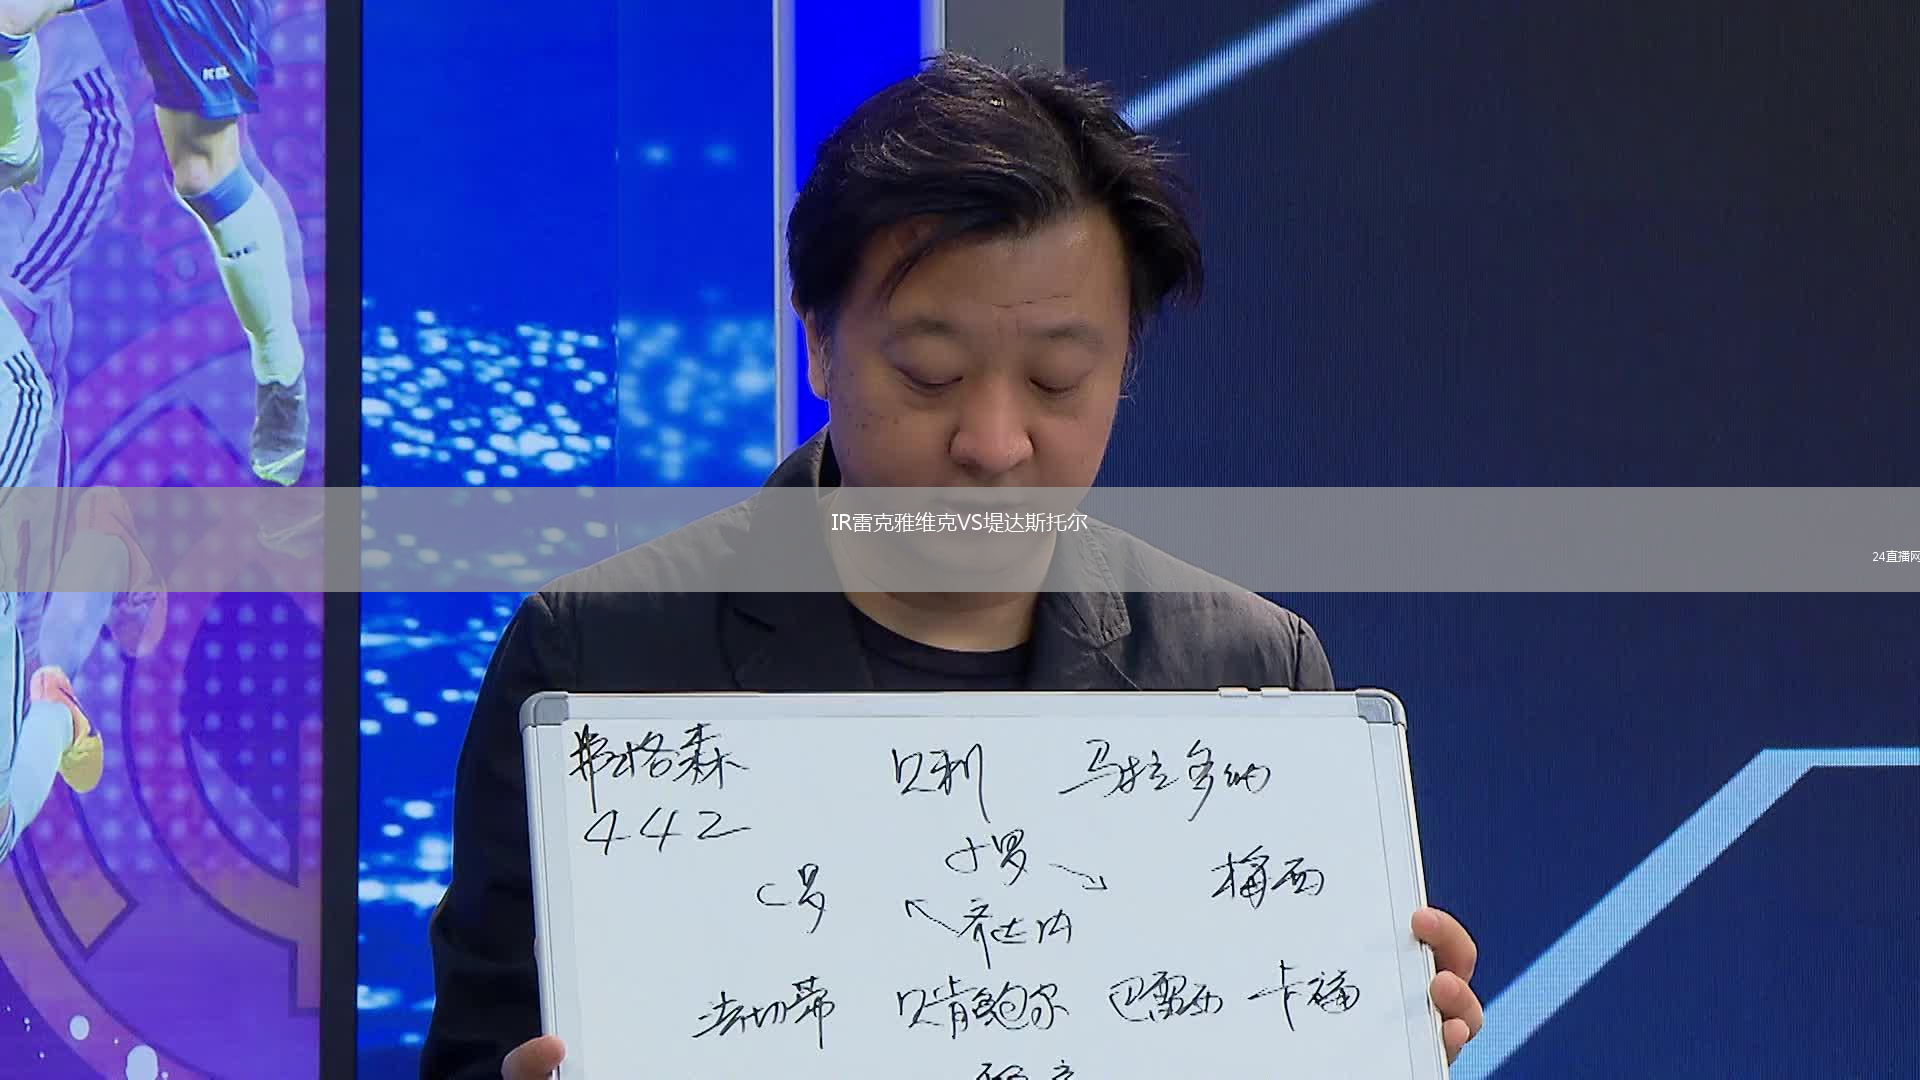 IR雷克雅维克VS堤达斯托尔
24直播网
弗格森 贝利 马拉多纳
442
小罗
C罗 梅西
齐达内
法切蒂 贝肯鲍尔 巴雷西 卡福